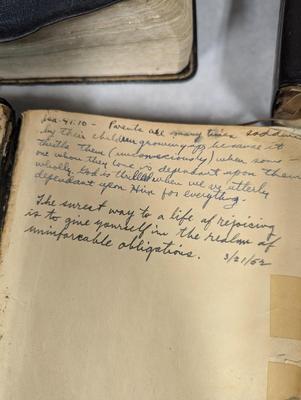 Isa-41:10 - Parents are many times saddened
by their children growing up because it
thrills them (unconsciously) when some
one whom they love is dependant upon them
wholly. God is thrilled when we're utterly
dependant upon Him for everything.
The surest way to a life of rejoicing
is to give yourself in the realm of
uninforcable obligations. 3/21/52